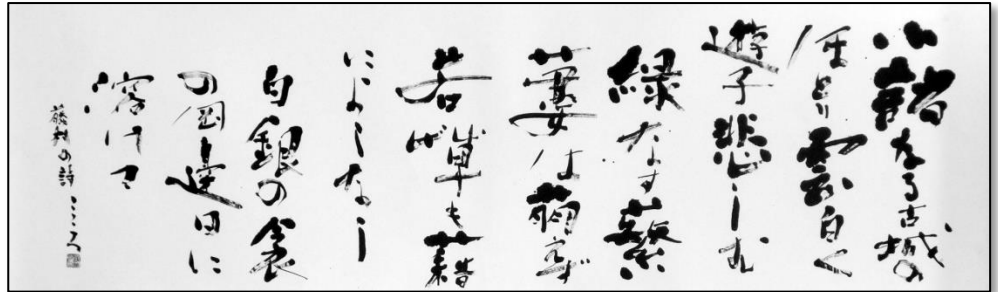 小諸なる古城の
ほとり雲白く
遊子悲しむ
緑なす蘩
蔞は萌えず
若草も藉
くによしなし
白銀の衾
の岡邊日に
溶けて
藤村の詩 こころ